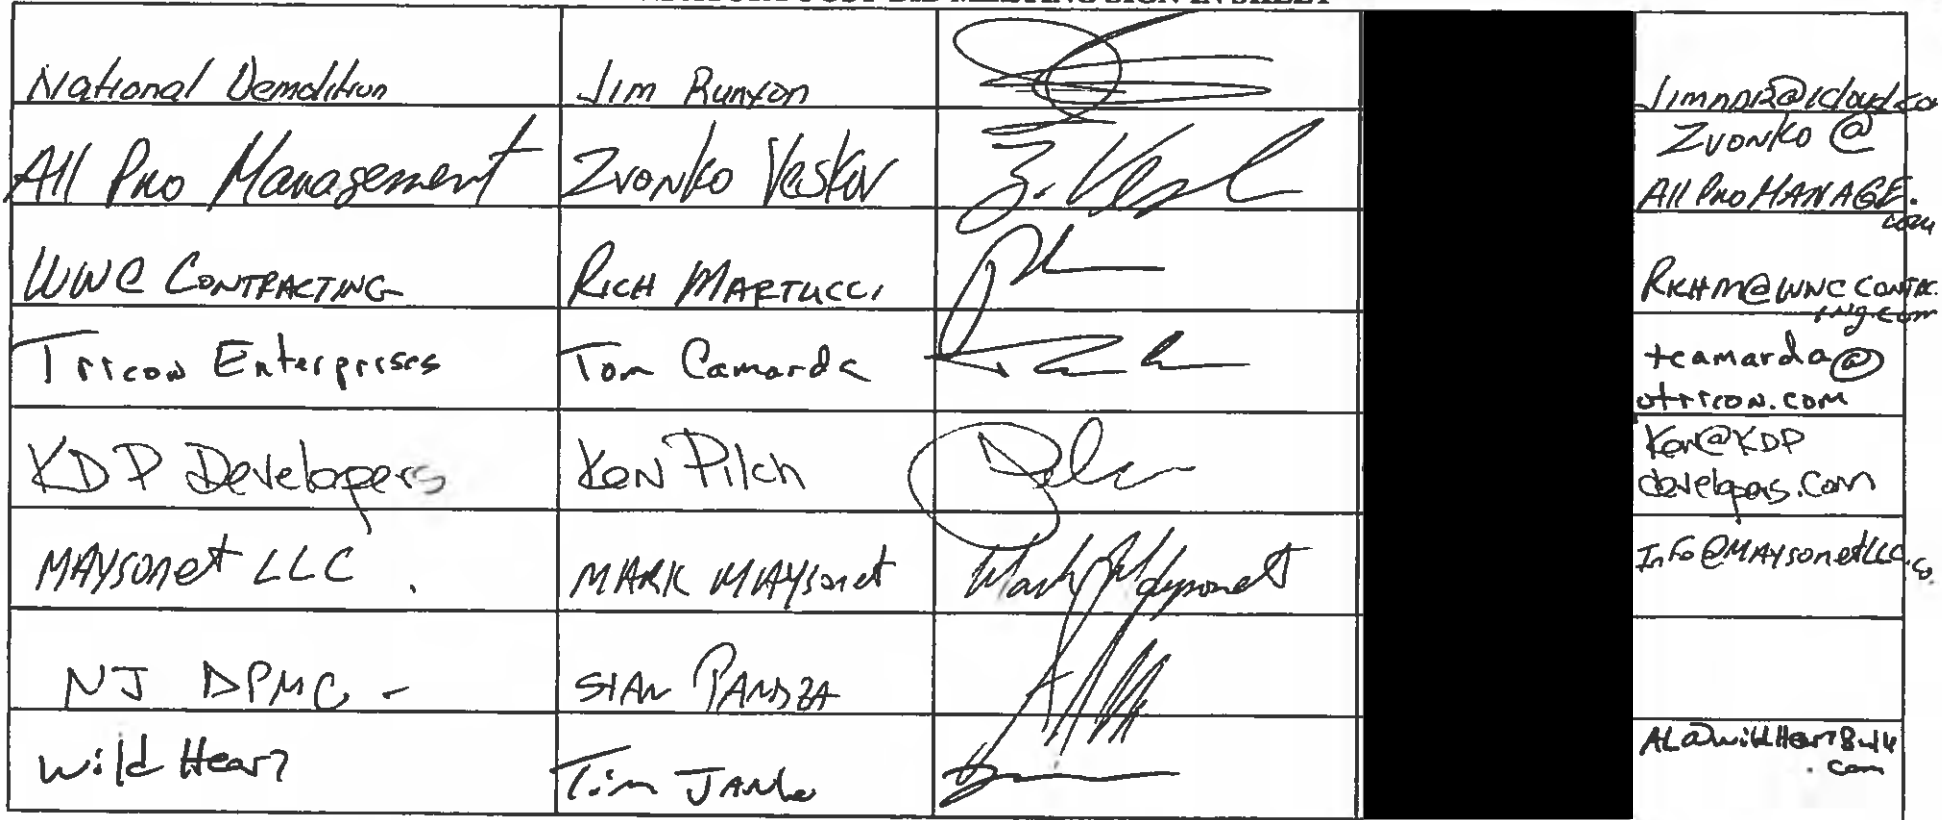 SIGN IN SHEET
National Demolition Jim Runyon
All Pro Management Zvonko Veskov Z. Vesk Zvonko @
All Pro MANAGE.
com
WWC CONTRACTING RICH MARTUCCI RICHM@WWCCONTRACT
ing.com
Tricon Enterprises Tom Camarda tcamarda@
utricon.com
KDP Developers Ken Pilch Ken@KDP
developers.com
MAYSONET LLC. MARK MAYSONET Mark Maysonet Info@MAYSONETLLC.co
NJ DPMC -
Wild Heart Tim
.com